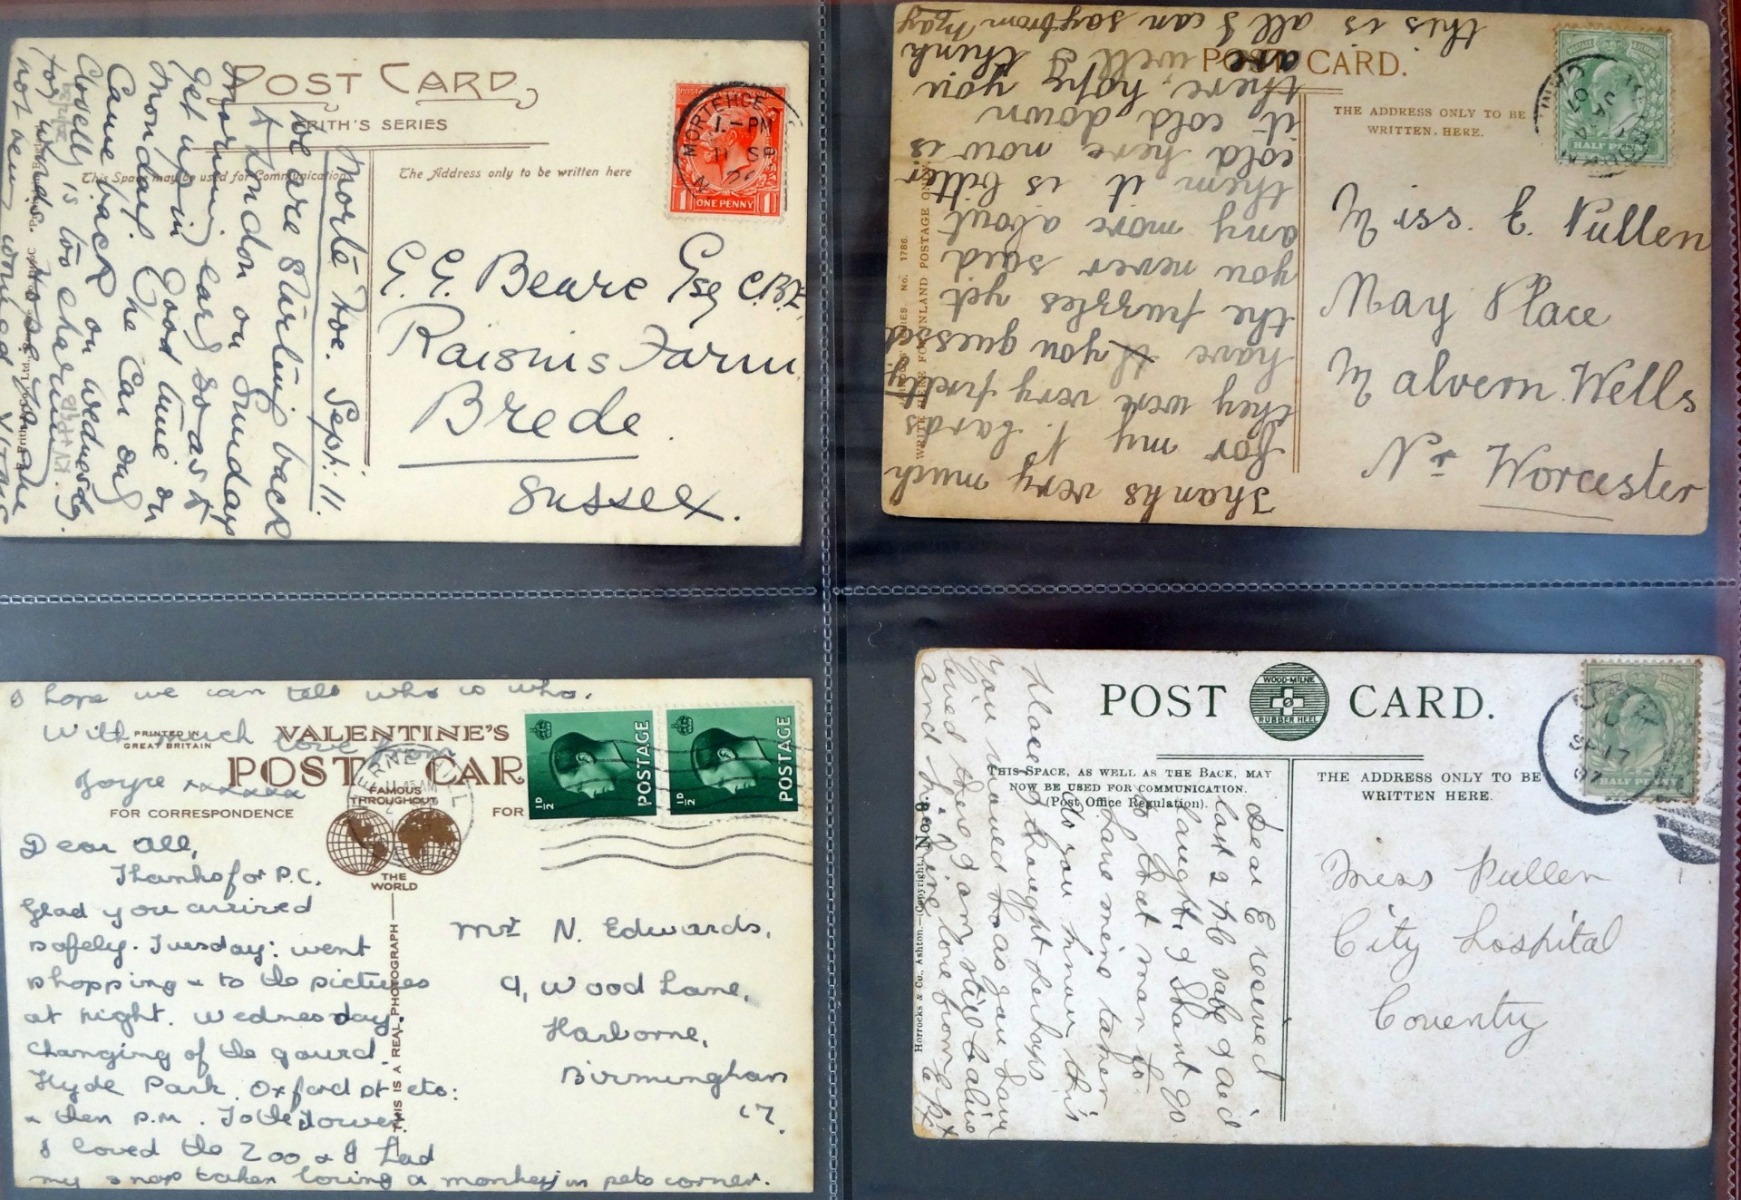 POST CARD
FRITH'S SERIES
This Space may be used for Communication
The Address only to be written here
MORTEHOE
1.-PM
11 SP
ONE PENNY
G. G. Beare Esq C.B.E.
Raisins Farm
Brede.
Sussex.
Morte Hoe. Sept: 11.
We are starting back
to London on Sunday
morning early so as to
get up in good time on
Monday. The Car only
Came back on Wednesday.
Covelly is too charming
for words.
POST CARD.
THE ADDRESS ONLY TO BE
WRITTEN HERE.
WRITE HERE FOR INLAND POSTAGE ONLY.
SERIES No. 1786.
HALF PENNY
Miss. E. Pullen
May Place
Malvern Wells
Nr Worcester
Thanks very much
for my P. Cards
they were very pretty
have you guessed
the puzzles yet
you never said
any more about
them it is bitter
cold here now is
it cold down
there, hope you
are well I think
this is all I can say from May
I hope we can tell who is who.
With much love from
Joyce xxxxxx
PRINTED IN
GREAT BRITAIN
VALENTINE'S
POST CAR
FAMOUS
THROUGHOUT
THE
WORLD
FOR CORRESPONDENCE
FOR
THIS IS A REAL PHOTOGRAPH
½D POSTAGE
½D POSTAGE
Dear All,
Thanks for P.C.
Glad you arrived
safely. Tuesday: went
shopping & to the pictures
at night. Wednesday.
Changing of the gourd,
Hyde Park. Oxford St etc:
& then P.M. To the Tower.
I loved the Zoo & I had
my snap taken loving a monkey in pets corner.
Mrs N. Edwards,
9, Wood Lane,
Harborne,
Birmingham
17.
POST CARD.
WOOD-MILNE
RUBBER HEEL
THIS SPACE, AS WELL AS THE BACK, MAY
NOW BE USED FOR COMMUNICATION.
(Post Office Regulation).
THE ADDRESS ONLY TO BE
WRITTEN HERE.
Horrocks & Co., Ashton.—Copyright.
HALF PENNY
SP 17
07
Miss Pullen
City Hospital
Coventry
Dear E received
last 2 P.C safe
I shant go
have mine taken
to that man
do you know this
place I thought perhaps
you would as you have
lived there I am still alive
and